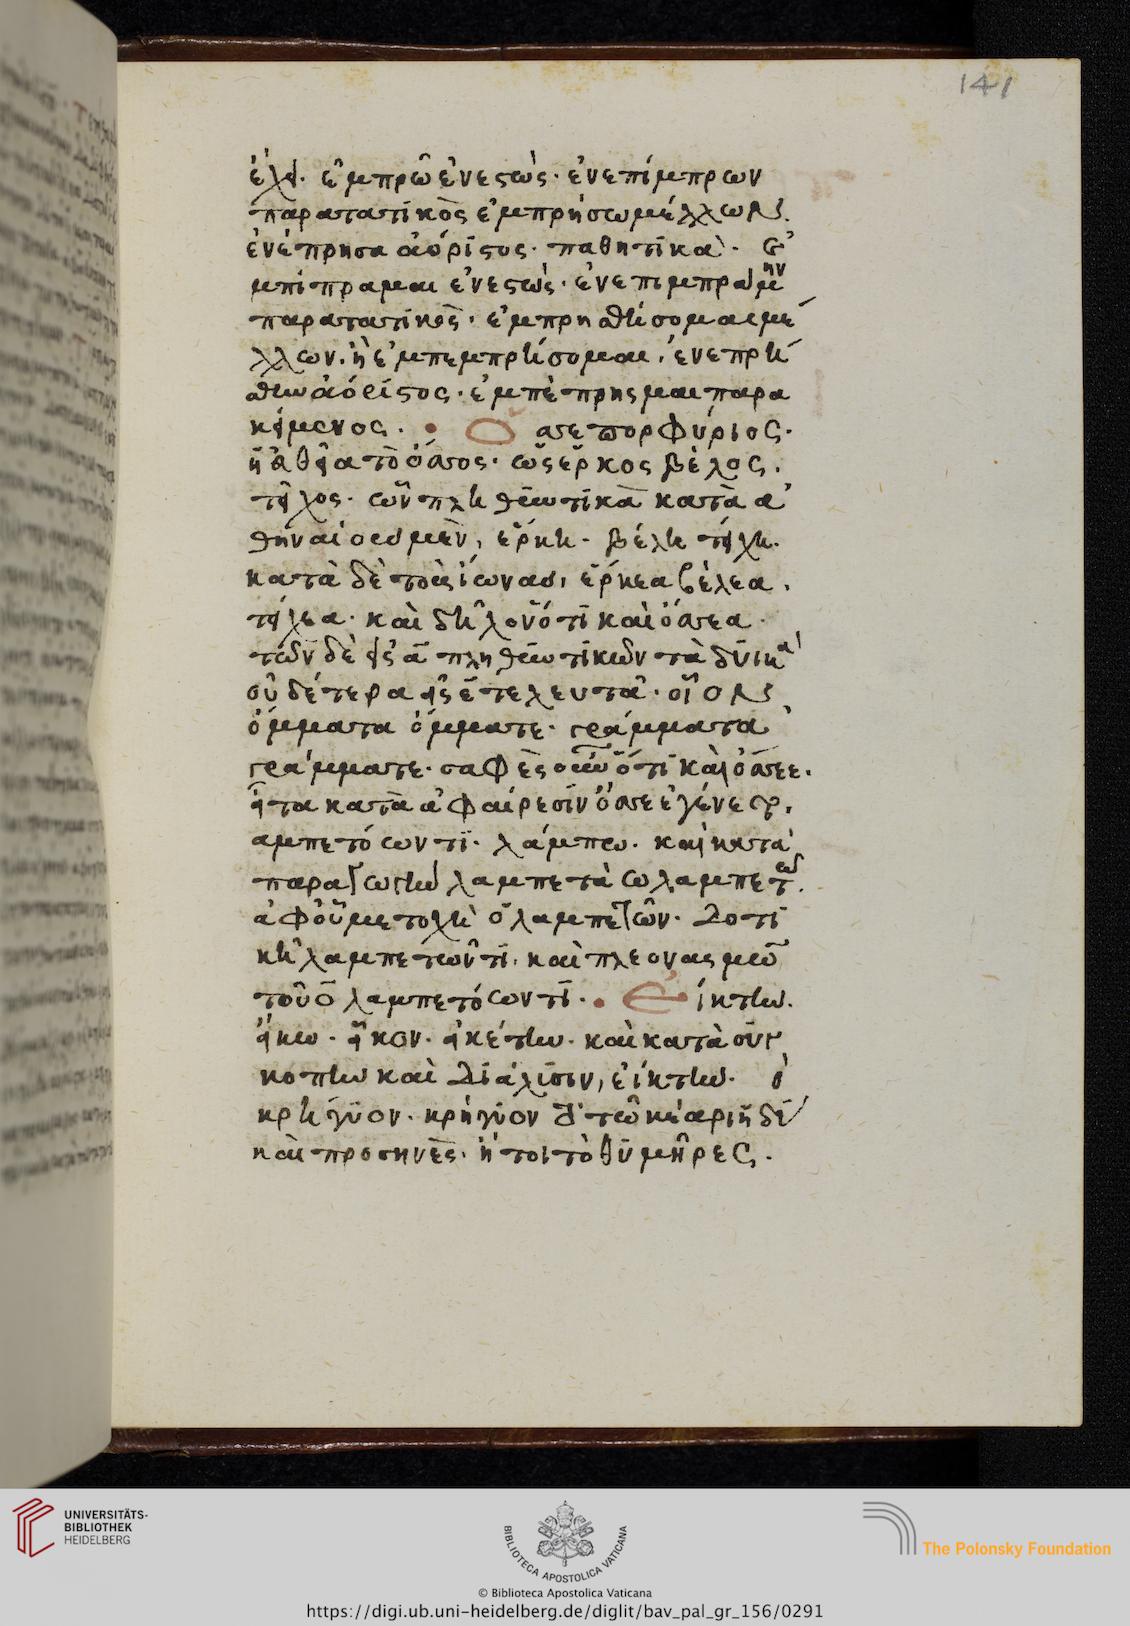 141
ἔχει. ἐμπρῶ ἐνεστώς. ἐνεπίμπρων
παρατατικὸς ἐμπρήσω μέλλων.
ἐνέπρησα ἀόριστος. παθητικὰ. ἐ
μπίπραμαι ἐνεστώς. ἐνεπιμπράμην
παρατατικὸς. ἐμπρηθήσομαι μέ
λλων. ἢ ἐμπεμπρήσομαι. ἐνεπρή
θην ἀόριστος. ἐμπέπρησμαι παρα
κείμενος. Ὄσσε πορφύριος.
εὐθεῖα τὸ ὄσσος. ὡς ἕρκος βέλος.
τεῖχος. ὧν πληθυντικὰ κατὰ ἀ
θηναίους μὲν, ἕρκη. βέλη τείχη.
κατὰ δὲ τοὺς ἴωνας, ἕρκεα βέλεα.
τείχεα. καὶ δῆλον ὅτι καὶ ὄσσεα.
τῶν δὲ εἰς α πληθυντικῶν τὰ δυικὰ
οὐδέτερα εἰς ε τελευτᾶ. οἷον
ὄμματα ὄμματε. γράμματα
γράμματε. σαφὲς οὖν ὅτι καὶ ὄσσεε.
εἶτα κατὰ ἀφαίρεσιν ὄσσε ἐγένετο.
λαμπετόωντι. λάμπω. καὶ κατὰ
παραγωγὴν λαμπετάω λαμπετῶ.
ἀφ' οὗ μετοχὴ ὁ λαμπετῶν. δοτι
κῆ λαμπετῶντι. καὶ πλεονασμῶ
τοῦ ο λαμπετόωντι. Ἐίκτην.
εἴκω. εἶκον. εἰκέτην. καὶ κατὰ συγ
κοπὴν καὶ διάλυσιν, ἐίκτην. ὁ
κρήγυον. κρήγυον
καὶ προσηνὲς. ἤτοι τὸ θυμῆρες.
UNIVERSITÄTS-
BIBLIOTHEK
HEIDELBERG
BIBLIOTECA APOSTOLICA VATICANA
The Polonsky Foundation
© Biblioteca Apostolica Vaticana
https://digi.ub.uni-heidelberg.de/diglit/bav_pal_gr_156/0291